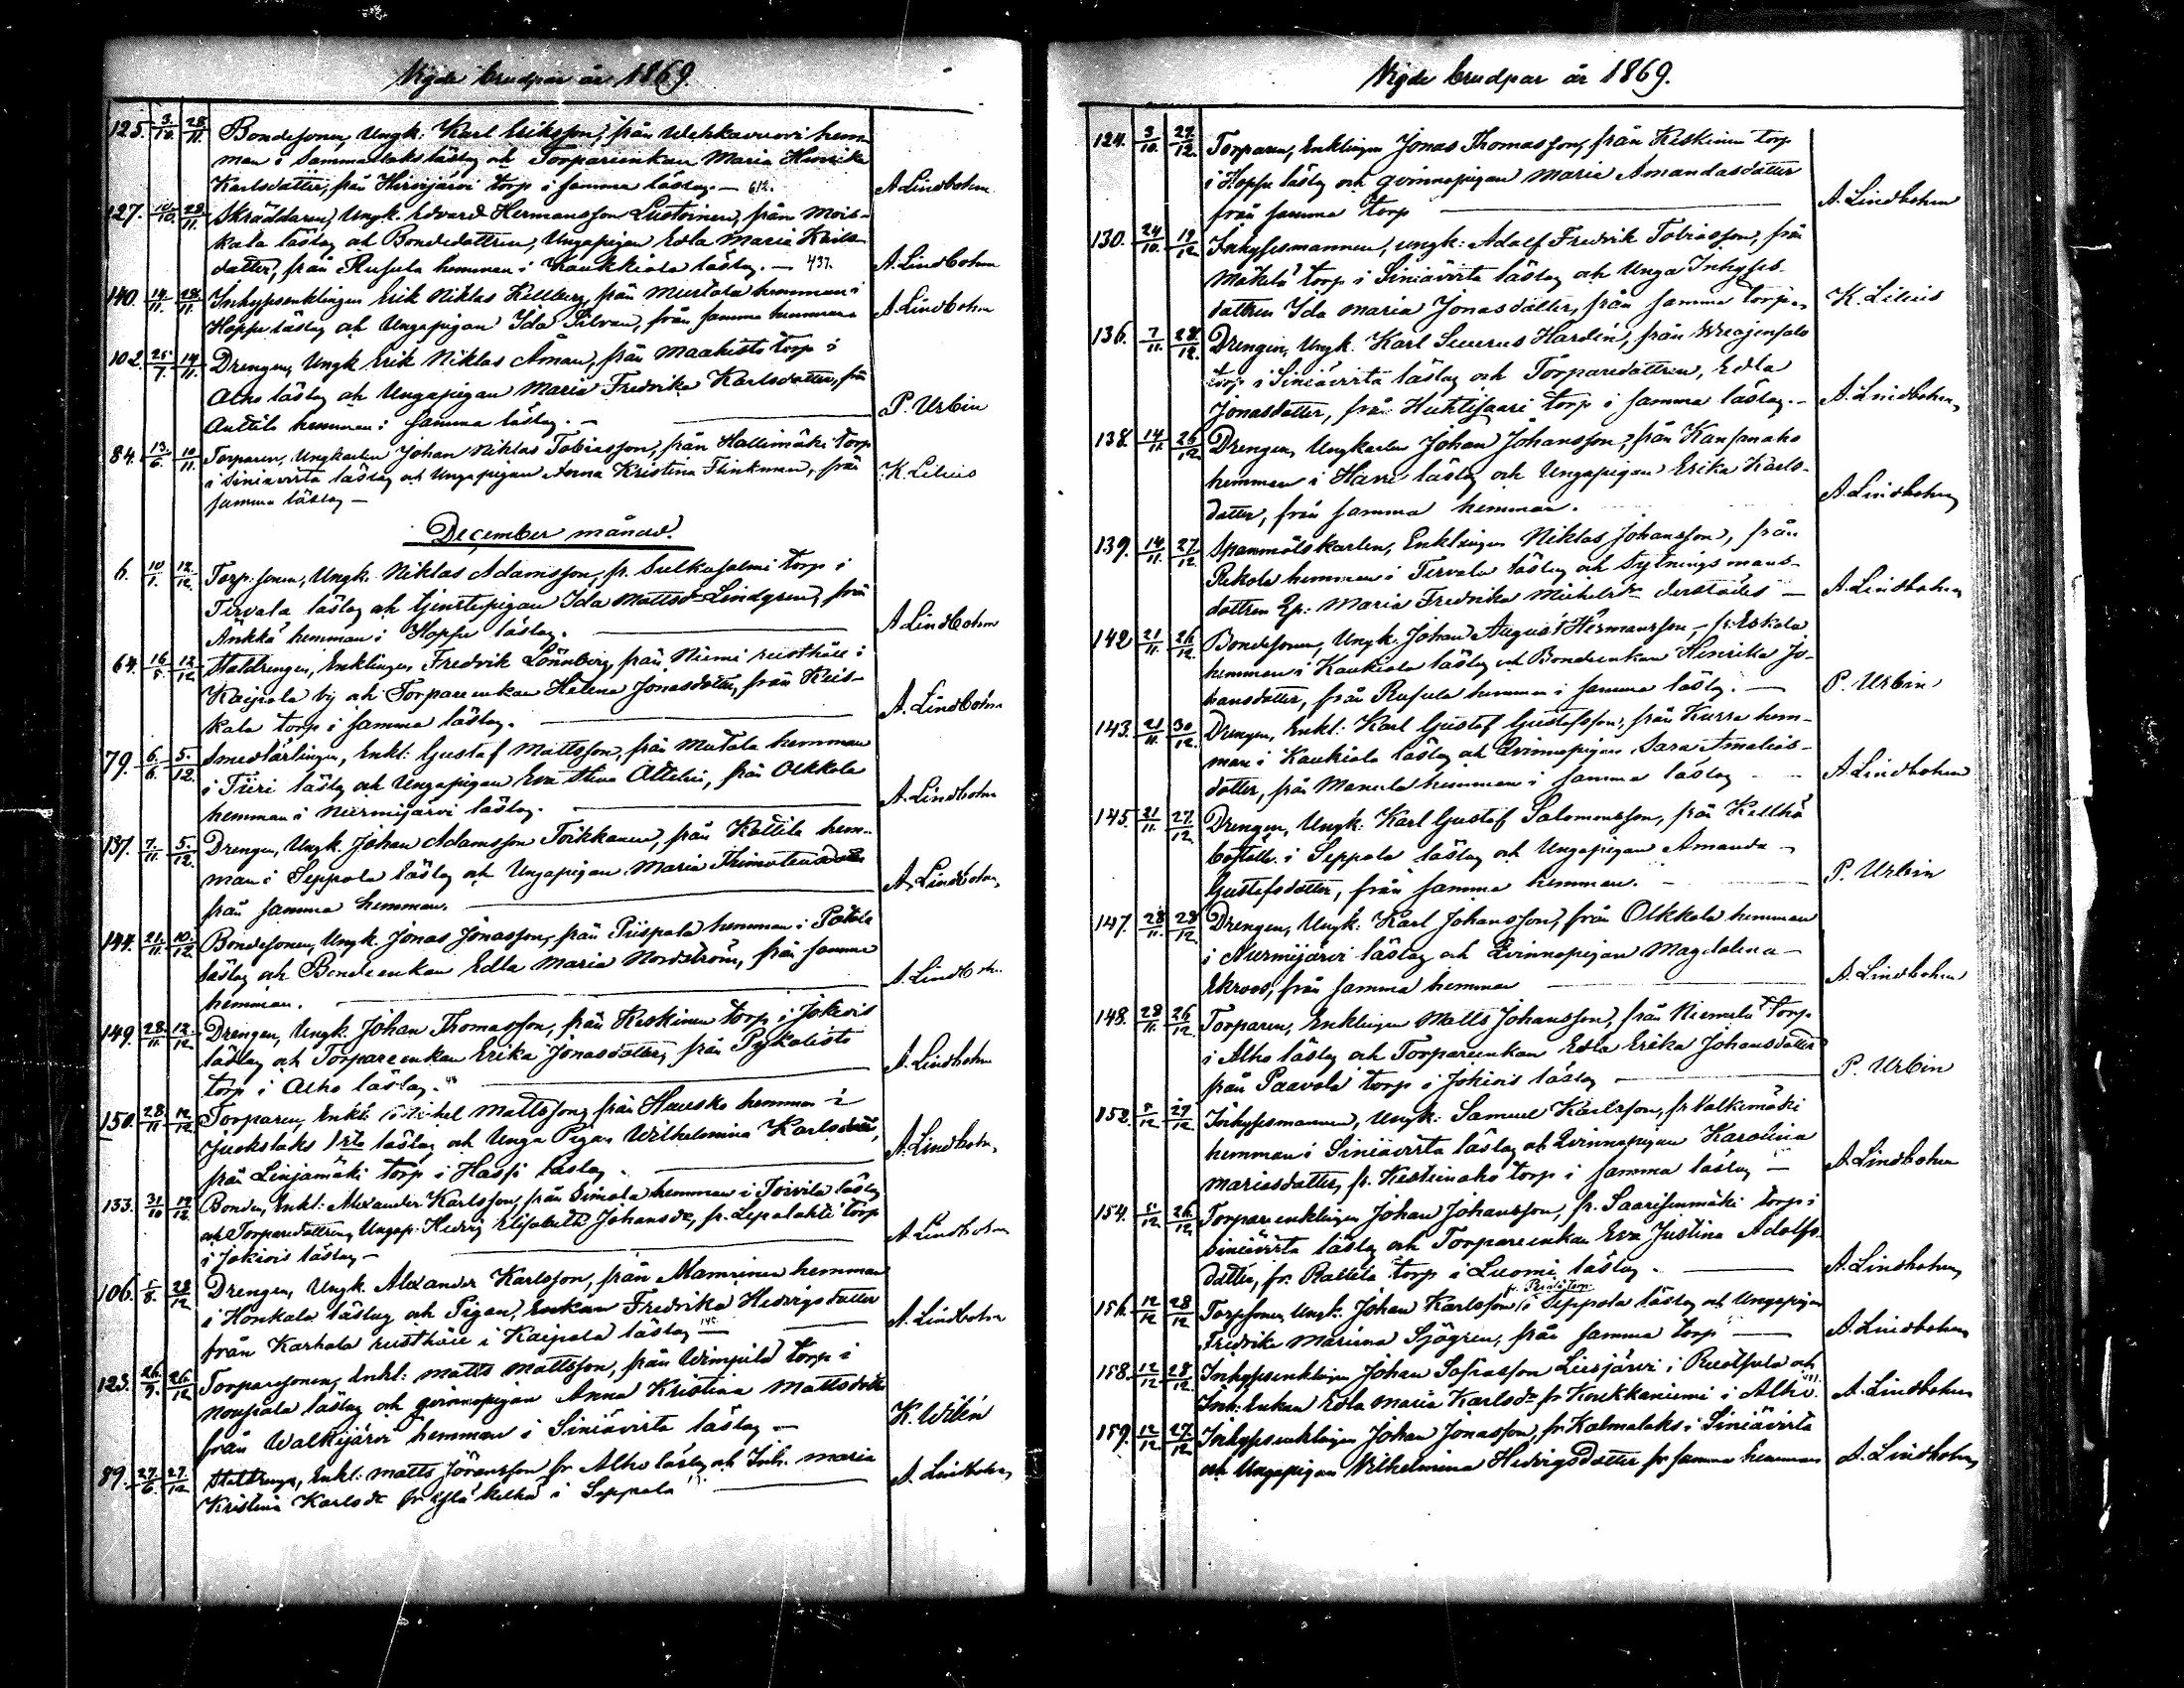 Vigde brudpar år 1869.
125. 3/10. 28/11. Bondesonen, Ungk: Karl Eriksson, från Wehkavuori hem-
man i Sammallaks läslag och Torpareenkan Maria Henrika
Karlsdotter, från Hirvijärvi torp i samma läslag. — 612. A Lindbohm
127. 10/10. 28/11. Skräddaren, Ungk. Edvard Hermansson Lustoinen, från Mois-
kala läslag och Bondedottren, Ungapigan Edla Maria Karls-
dotter, från Rusula hemman i Kaukkiala läslag. — 437. A. Lindbohm
140. 14/11. 28/11. Inhysesenklingen Erik Niklas Kellberg, från Mustala hemman i
Hopsu läslag och Ungapigan Ida Silvan, från samma hemman A Lindbohm
102. 25/7. 14/11. Drengen, Ungk Erik Niklas Åman, från Maahisto torp i
Alho läslag och Ungapigan Maria Fredrika Karlsdotter, från
Anttila hemman i samma läslag. — P. Urbin
84. 13/6. 10/11. Torparen, Ungkarlen Johan Niklas Tobiasson, från Kallimäki torp
i Siniävirta läslag och Ungapigan Anna Kristina Flinkman, från
samma läslag — K. Lilius
December månad.
6. 10/1. 12/12. Torp. sonen, Ungk. Niklas Adamsson, fr. Sulkusalmi torp i
Tervala läslag och tjenstepigan Ida Mattsd Lindgren, från
Änkkä hemman i Hopsu läslag. — A Lindbohm
64. 16/5. 12/12. Staldrengen, Enklingen Fredrik Lönnberg, från Niemi rusthåll i
Kaipola by och Torpareenkan Helena Jonasdotter, från Keis-
kala torp i samma läslag. — A. Lindbohm
79. 6/6. 5/12. Smedlärlingen, Enkl: Gustaf Mattsson, från Matala hemman
i Tiiri läslag och Ungapigan Eva Stina Ottelin, från Olkkola
hemman i Nurmijärvi läslag. — A. Lindbohm
137. 7/11. 5/12. Drengen, Ungk. Johan Adamsson Toikkanen, från Kottila hem-
man i Seppola läslag och Ungapigan Maria Thimoteusdotter
från samma hemman. — A. Lindbohm
144. 21/11. 10/12. Bondesonen, Ungk. Jonas Jonasson, från Piispala hemman i Pätiälä
läslag och Bondeenkan Edla Maria Nordström, från samma
hemman. — A. Lindbohm
149. 28/11. 12/12. Drengen, Ungk. Johan Thomasson, från Keskinen torp i Jokiois
läslag och Torpareenkan Erika Jonasdotter, från Pykälistö
torp i Alho läslag. — A. Lindbohm
150. 28/11 12/12. Torparen, Enkl: Michel Mattsson, från Hausko hemman i
Juokslaks 1sta läslag och Unga Pigan Wilhelmina Karlsdotter,
från Linjamäki torp i Hassi läslag. — A. Lindbohm
133. 31/10 19/12. Bonden, Enkl: Alexander Karlsson, från Simola hemman i Toivila läslag
och Torparedottren, Ungap: Hedvig Elisabeth Johansdr, fr. Lepolahti torp
i Jokiois läslag — A Lindbohm
106. 5/8. 28/12 Drengen, Ungk. Alexander Karlsson, från Mamrinen hemman
i Honkola läslag och Pigan, enkan Fredrika Hedvigsdotter
från Karhola rusthåll i Kaipola läslag — A. Lindbohm
123. 26/9. 26/12 Torparesonen, Enkl: Matts Mattsson, från Wimpilä torp i
Nouspola läslag och qvinnopigan Anna Kristina Mattsdotter
från Walkijärvi hemman i Siniävirta läslag — K. Wilén
89. 27/6. 27/12 Staldrengen, Enkl: Matts Jöransson fr Alho läslag och Inh. Maria
Kristina Karlsdr fr Kelhä i Seppola — A. Lindbohm
Vigde brudpar år 1869.
124. 3/10. 27/12. Torparen, Enklingen Jonas Thomasson, från Keskinen torp
i Hopsu läslag och qvinnopigan Maria Amandasdotter
från samma torp — A. Lindbohm
130. 24/10. 19/12 Inhysesmannen, ungk: Adolf Fredrik Tobiasson, från
Mäkelä torp i Siniävirta läslag och Unga Inhyses-
dottren Ida Maria Jonasdotter, från samma torp. K. Lilius
136. 7/11. 28/12. Drengen, Ungk. Karl Severus Hardén, från Wuojensalo
torp i Siniävirta läslag och Torparedottren, Edla
Jonasdotter, från Huhtisaari torp i samma läslag. A. Lindbohm
138. 14/11. 26/12 Drengen, Ungkarlen Johan Johansson, från Kansanaho
hemman i Havi läslag och Ungapigan Erika Karls-
dotter, från samma hemman. A. Lindbohm
139. 14/11. 27/12 Spanmålskarlen, Enklingen Niklas Johansson, från
Pekola hemman i Tervala läslag och Sytningsmans-
dottren Qp: Maria Fredrika Michelsdr derstädes — A. Lindbohm
142 21/11. 26/12. Bondesonen, Ungk. Johan August Hermansson, fr. Eskola
hemman i Kaukiala läslag och Bondeenkan Henrika Jo-
hansdotter, från Rusula hemman i samma läslag. — P. Urbin
143. 21/11. 30/12. Drengen, Enkl: Karl Gustaf Gustafsson, från Kurra hem-
man i Kaukiala läslag och Qvinnopigan Sara Amalias-
dotter, från Manula hemman i samma läslag — A Lindbohm
145. 21/11. 27/12. Drengen, Ungk: Karl Gustaf Salomonsson, från Kellhä
boställe i Seppola läslag och Ungapigan Amanda
Gustafsdotter, från samma hemman. — P. Urbin
147. 28/11. 28/12. Drengen, Ungk: Karl Johansson, från Olkkola hemman
i Nurmijärvi läslag och Qvinnopigan Magdalena
Ekroos, från samma hemman — A. Lindbohm
148. 28/11. 26/12. Torparen, Enklingen Matts Johansson, från Niemelä torp
i Alho läslag och Torpareenkan Edla Erika Johansdotter
från Paavola torp i Jokiois läslag — P. Urbin
152. 5/12 27/12 Inhysesmannen, Ungk: Samuel Karlsson, fr. Valkemäki
hemman i Siniävirta läslag och Qvinnopigan Karolina
Mariasdotter, fr. Kesteinaho torp i samma läslag — A Lindbohm
154. 5/12 26/12 Torpareenklingen Johan Johansson, fr. Saarisenmäki torp i
Siniävirta läslag och Torpareenkan Eva Justina Adolfs-
dotter, fr. Rattila torp i Luomi läslag. — A. Lindbohm
156. 12/12 28/12 Torpsonen, Ungk: Johan Karlsson fr. Perälä torp i Seppola läslag och Ungapigan
Fredrika Mariana Sjögren, från samma torp — A. Lindbohm
158. 12/12 28/12. Inhysesenklingen Johan Sofiasson Liesjärvi i Ruotsula och
Inh: Enkan Edla Maria Karlsdr fr Koukkaniemi i Alho. A. Lindbohm
159. 12/12. 27/12 Inhysesenklingen Johan Jonasson, fr Kalmalaks i Siniävirta
och Ungapigan Wilhelmina Hedvigsdotter fr samma hemman A. Lindbohm